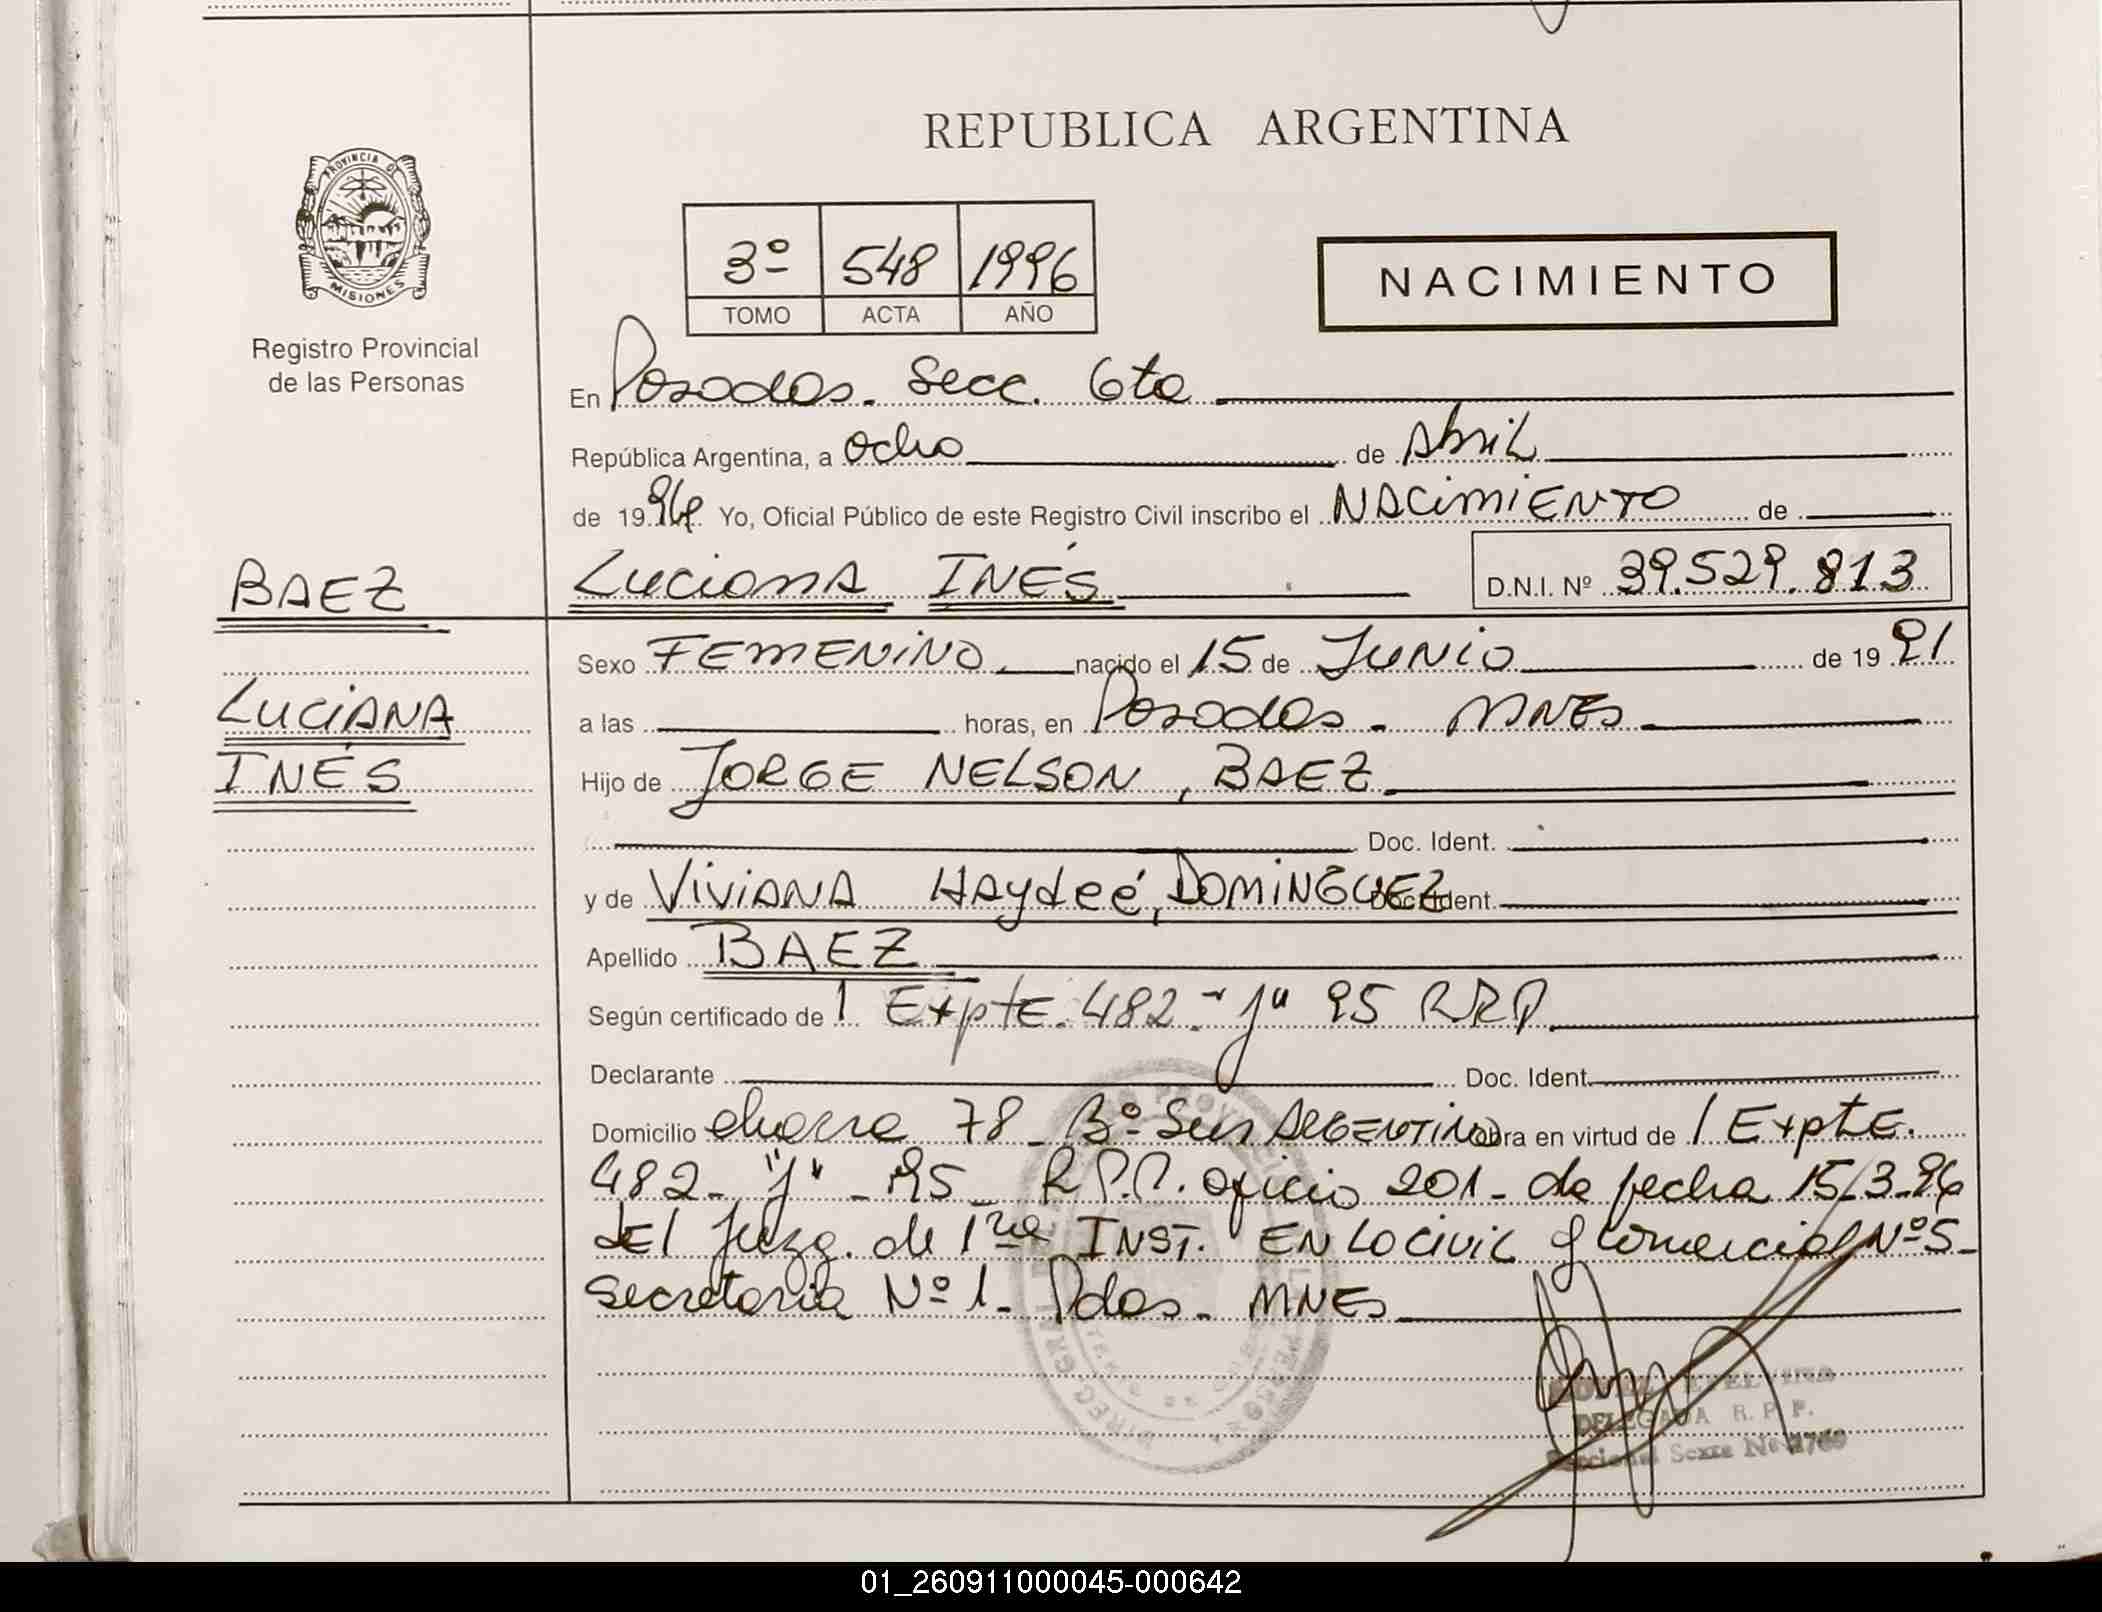 REPUBLICA ARGENTINA
PROVINCIA DE
MISIONES
Registro Provincial
de las Personas
3º 548 1996
TOMO ACTA AÑO
NACIMIENTO
En Posadas. Secc. 6ta
República Argentina, a Ocho de Abril
de 1996 Yo, Oficial Público de este Registro Civil inscribo el NACIMIENTO de
BAEZ
Luciana INÉS D.N.I. Nº 39.529.813
Sexo FEMENINO nacido el 15 de JUNIO de 1991
LUCIANA
a las horas, en Posadas - MNES
INÉS
Hijo de JORGE NELSON, BAEZ
Doc. Ident.
y de VIVIANA Haydeé, DOMINGUEZ Doc. Ident.
Apellido BAEZ
Según certificado de 1 Expte. 482 - "J" 95 RRP
Declarante Doc. Ident.
Domicilio chacra 78 - Bº Sur ARGENTINO obra en virtud de 1 Expte.
482 - "J" - 95 - R.P.P. oficio 201 - de fecha 15/3-96
del Juzg. de 1ra INST. EN LO CIVIL y Comercial Nº 5 -
Secretaria Nº 1 - Pdas - MNES
DELEGADA R. P. P.
Seccional Sexta
01_260911000045-000642